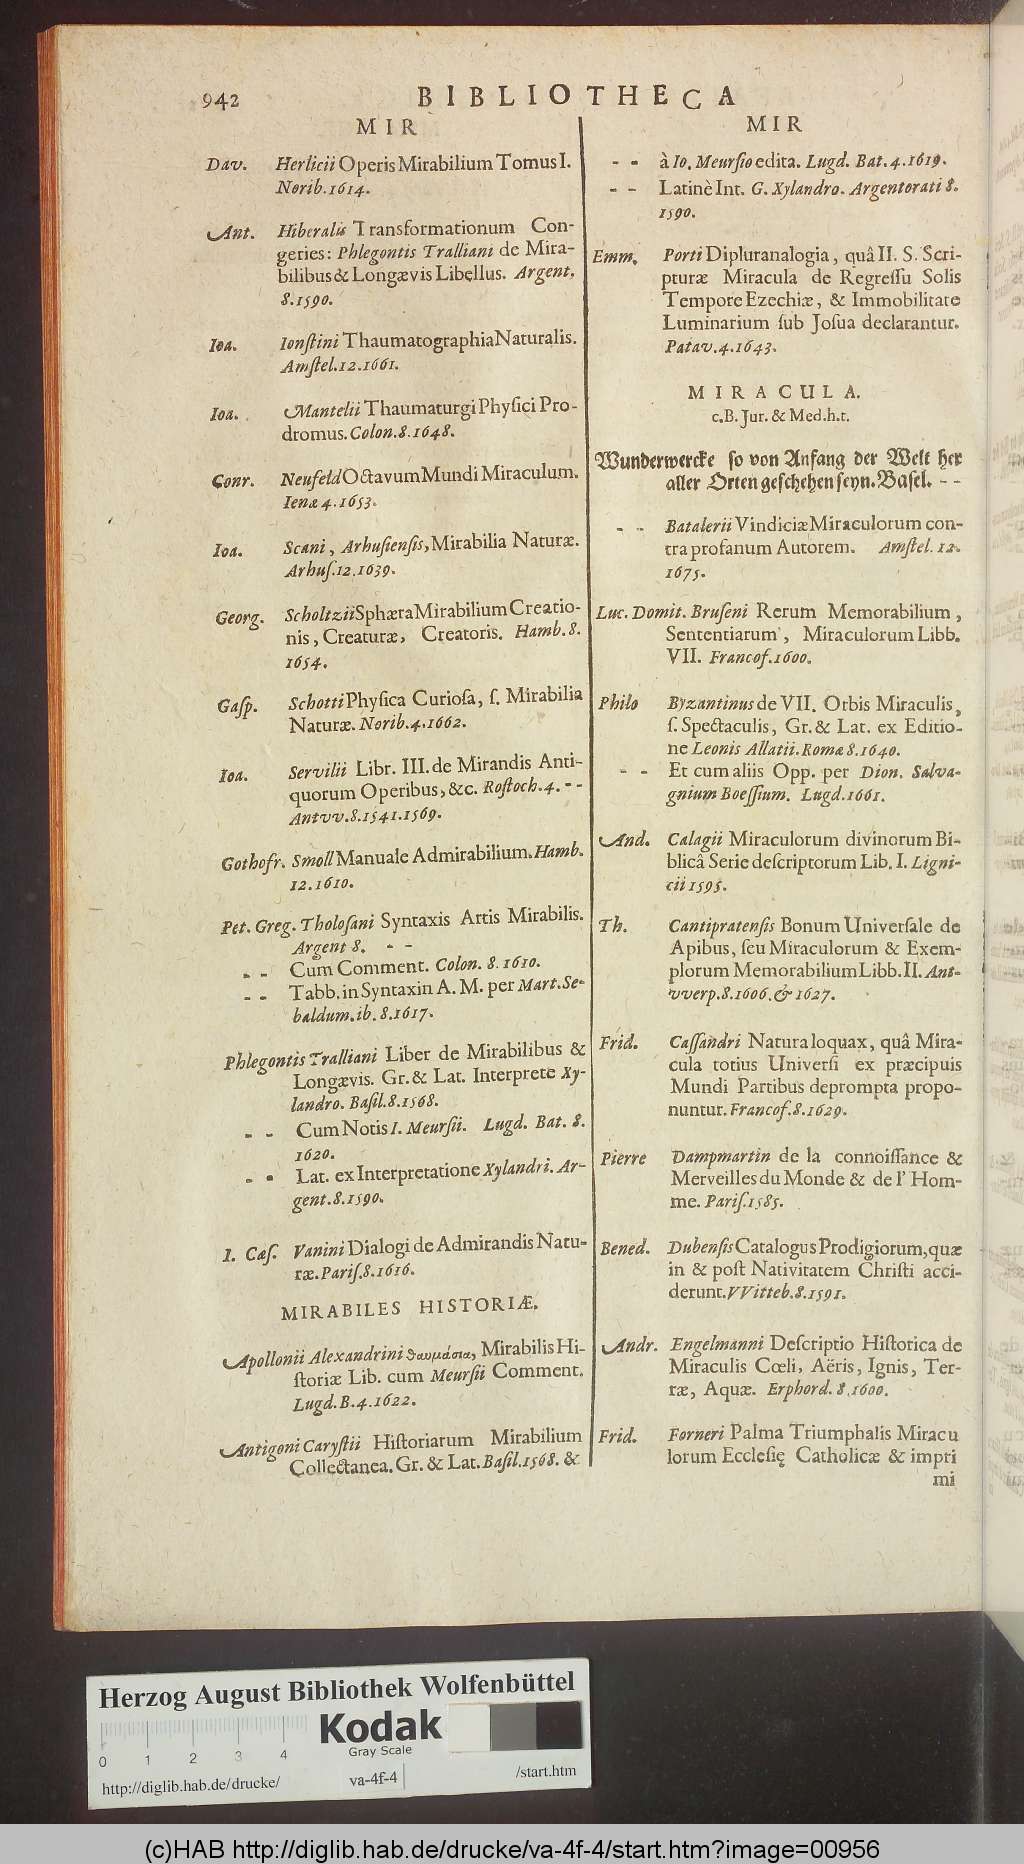 942
BIBLIOTHECA
MIR
Dav. Herlicii Operis Mirabilium Tomus I.
Norib. 1614.
Ant. Hiberalis Transformationum Con-
geries: Phlegontis Tralliani de Mira-
bilibus & Longævis Libellus. Argent.
8. 1590.
Ioa. Ionſtini Thaumatographia Naturalis.
Amſtel. 12. 1661.
Ioa. Mantelii Thaumaturgi Phyſici Pro-
dromus. Colon. 8. 1648.
Conr. Neufeld Octavum Mundi Miraculum.
Ienæ 4. 1653.
Ioa. Scani, Arhuſienſis, Mirabilia Naturæ.
Arhuſ. 12. 1639.
Georg. Scholtzii Sphæra Mirabilium Creatio-
nis, Creaturæ, Creatoris. Hamb. 8.
1654.
Gaſp. Schotti Phyſica Curioſa, ſ. Mirabilia
Naturæ. Norib. 4. 1662.
Ioa. Servilii Libr. III. de Mirandis Anti-
quorum Operibus, &c. Roſtoch. 4. - -
Antvv. 8. 1541. 1569.
Gothofr. Smoll Manuale Admirabilium. Hamb.
12. 1610.
Pet. Greg. Tholoſani Syntaxis Artis Mirabilis.
Argent 8. - -
- - Cum Comment. Colon. 8. 1610.
- - Tabb. in Syntaxin A. M. per Mart. Se-
baldum. ib. 8. 1617.
Phlegontis Tralliani Liber de Mirabilibus &
Longævis. Gr. & Lat. Interprete Xy-
landro. Baſil. 8. 1568.
- - Cum Notis I. Meurſii. Lugd. Bat. 8.
1620.
- - Lat. ex Interpretatione Xylandri. Ar-
gent. 8. 1590.
I. Cæſ. Vanini Dialogi de Admirandis Natu-
ræ. Pariſ. 8. 1616.
MIRABILES HISTORIÆ.
Apollonii Alexandrini θαυμάσια, Mirabilis Hi-
ſtoriæ Lib. cum Meurſii Comment.
Lugd. B. 4. 1622.
Antigoni Caryſtii Hiſtoriarum Mirabilium
Collectanea. Gr. & Lat. Baſil. 1568. &
MIR
- - à Io. Meurſio edita. Lugd. Bat. 4. 1619.
- - Latinè Int. G. Xylandro. Argentorati 8.
1590.
Emm. Porti Dipluranalogia, quâ II. S. Scri-
pturæ Miracula de Regreſſu Solis
Tempore Ezechiæ, & Immobilitate
Luminarium ſub Joſua declarantur.
Patav. 4. 1643.
MIRACULA.
c. B. Jur. & Med. h. t.
Wunderwercke ſo von Anfang der Welt her
aller Orten geſchehen ſeyn. Baſel. - -
- - Batalerii Vindiciæ Miraculorum con-
tra profanum Autorem. Amſtel. 12.
1675.
Luc. Domit. Bruſeni Rerum Memorabilium,
Sententiarum, Miraculorum Libb.
VII. Francof. 1600.
Philo Byzantinus de VII. Orbis Miraculis,
ſ. Spectaculis, Gr. & Lat. ex Editio-
ne Leonis Allatii. Romæ 8. 1640.
- - Et cum aliis Opp. per Dion. Salva-
gnium Boeſſium. Lugd. 1661.
And. Calagii Miraculorum divinorum Bi-
blicâ Serie deſcriptorum Lib. I. Ligni-
cii 1595.
Th. Cantipratenſis Bonum Univerſale de
Apibus, ſeu Miraculorum & Exem-
plorum Memorabilium Libb. II. Ant-
vverp. 8. 1606. & 1627.
Frid. Caſſandri Natura loquax, quâ Mira-
cula totius Univerſi ex præcipuis
Mundi Partibus deprompta propo-
nuntur. Francof. 8. 1629.
Pierre Dampmartin de la connoiſſance &
Merveilles du Monde & de l' Hom-
me. Pariſ. 1585.
Bened. Dubenſis Catalogus Prodigiorum, quæ
in & poſt Nativitatem Chriſti acci-
derunt. VVitteb. 8. 1591.
Andr. Engelmanni Deſcriptio Hiſtorica de
Miraculis Cœli, Aëris, Ignis, Ter-
ræ, Aquæ. Erphord. 8. 1600.
Frid. Forneri Palma Triumphalis Miracu
lorum Eccleſię Catholicæ & impri
mi
Herzog August Bibliothek Wolfenbüttel
Kodak
Gray Scale
0 1 2 3 4
http://diglib.hab.de/drucke/ va-4f-4 /start.htm
(c)HAB http://diglib.hab.de/drucke/va-4f-4/start.htm?image=00956